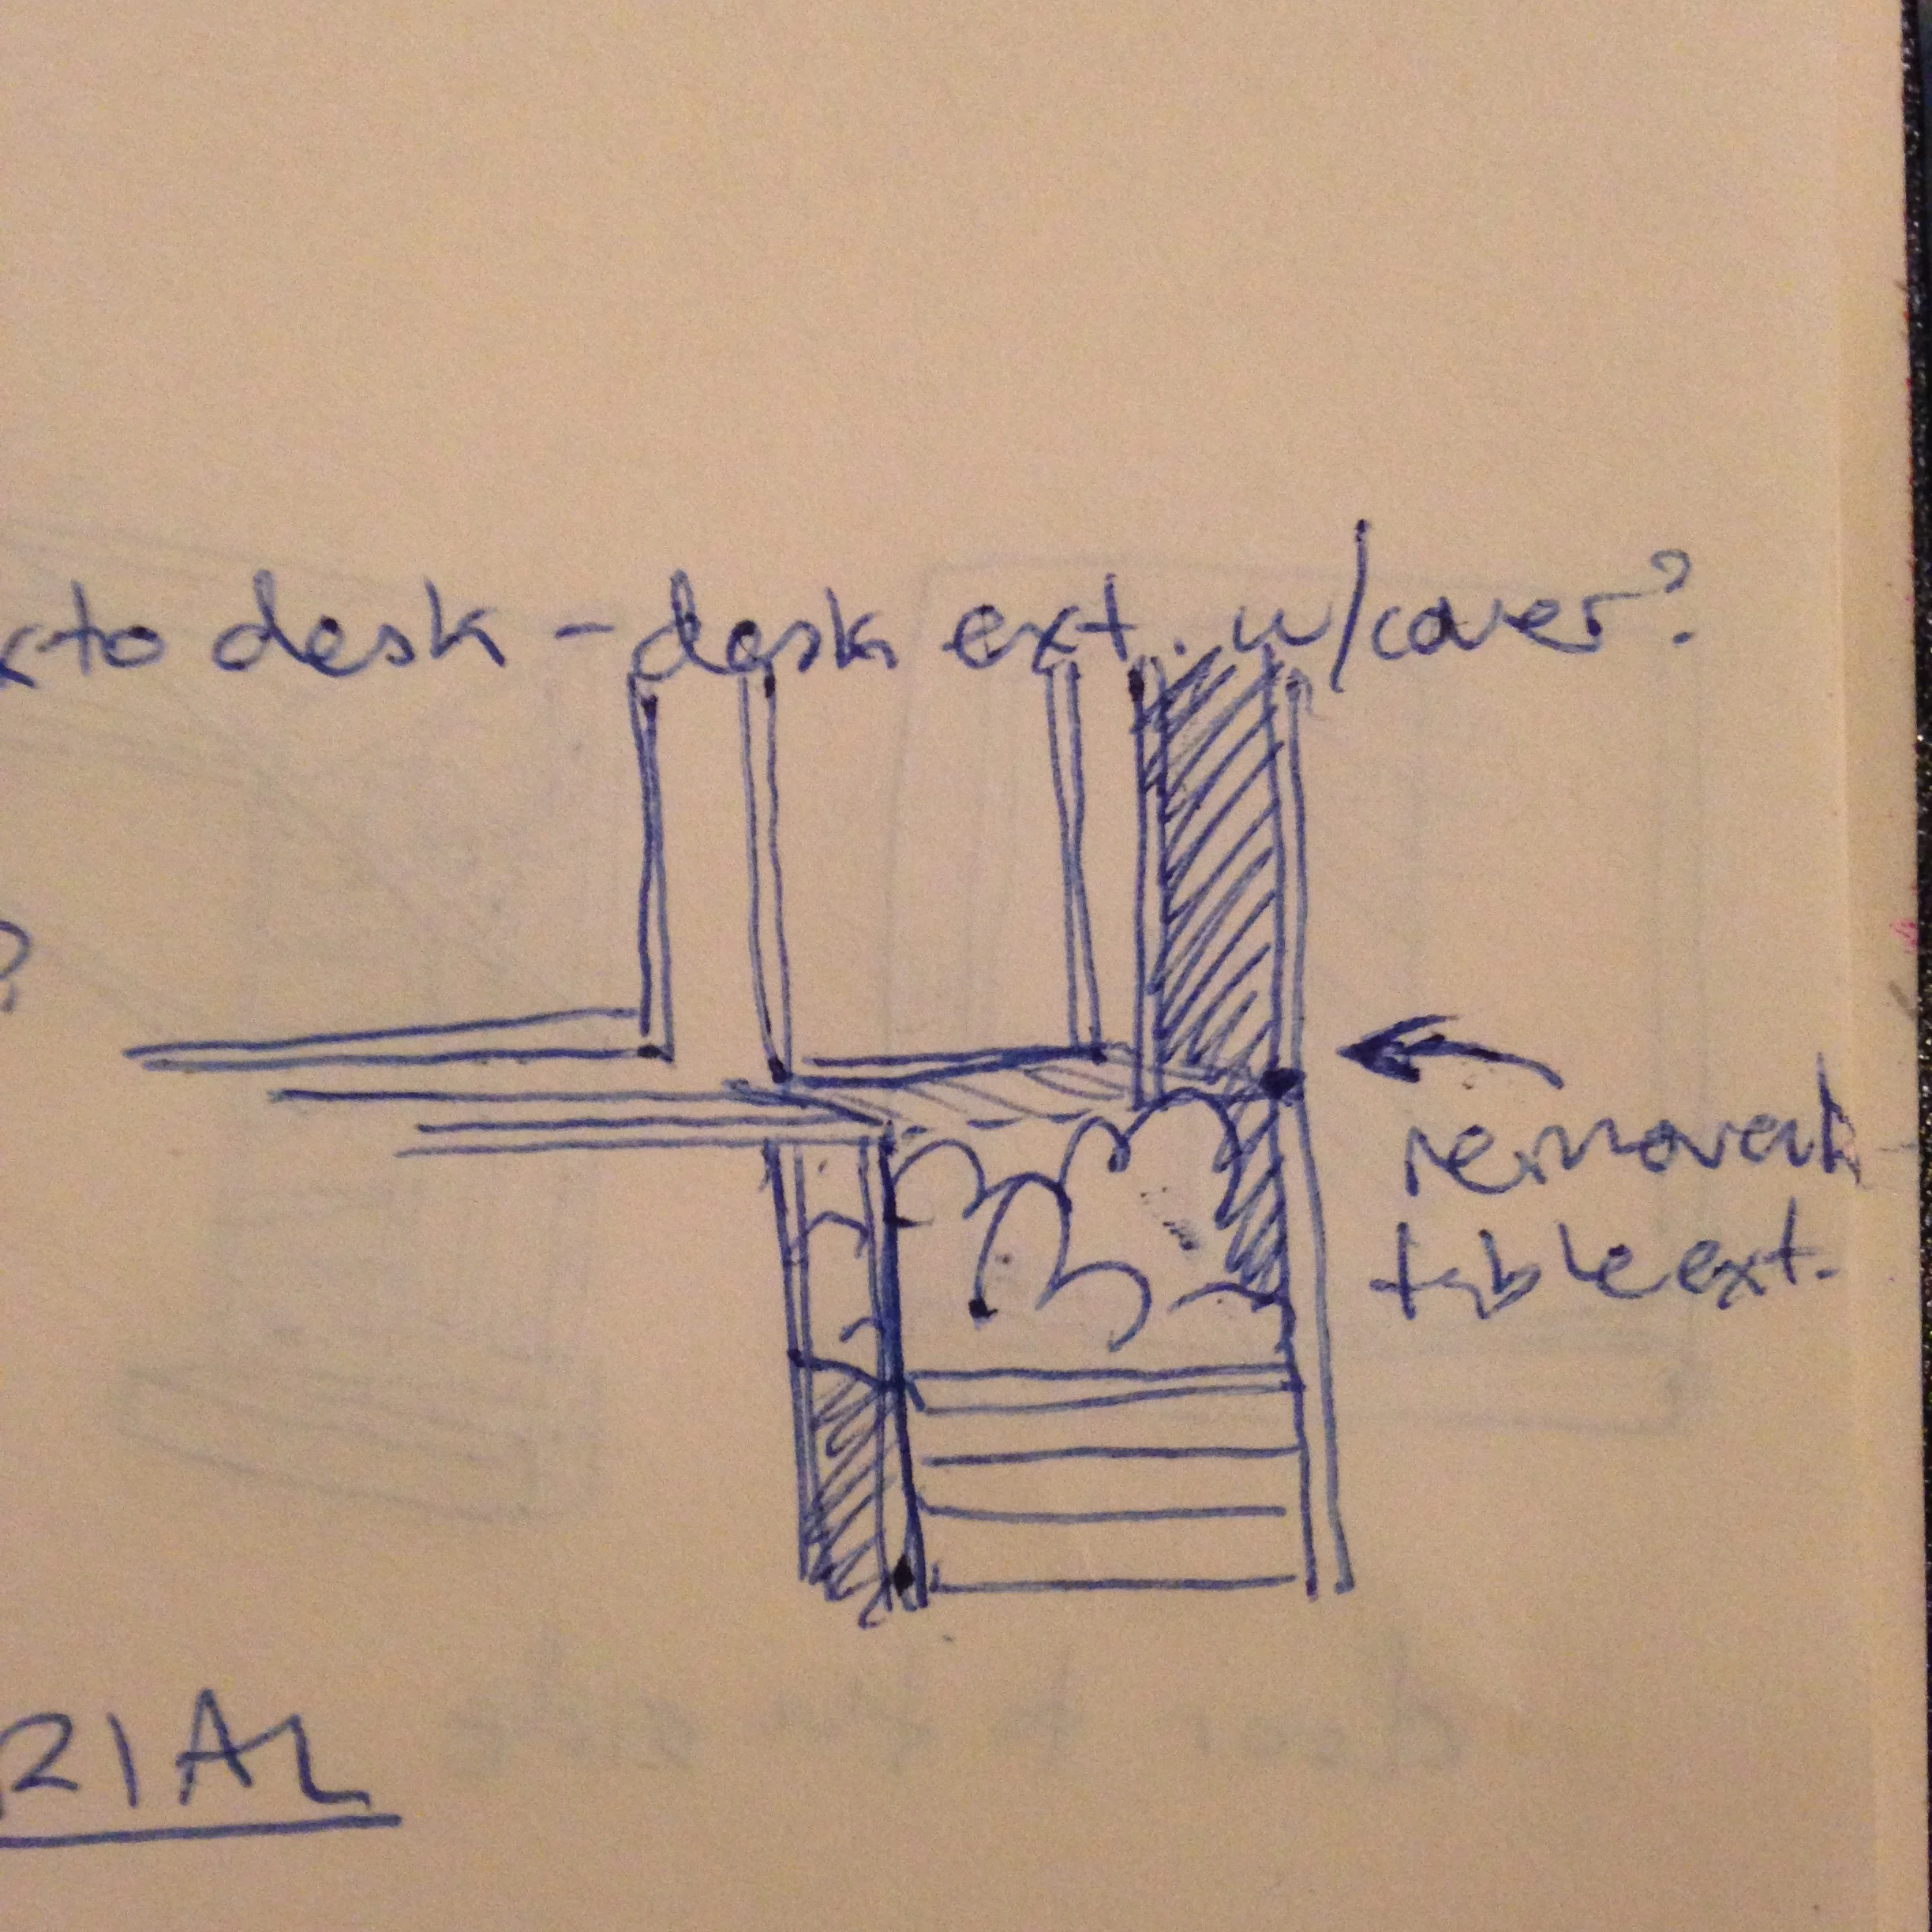 xto desk - desk ext. w/cover?
?
removeab
table ext.
RIAL